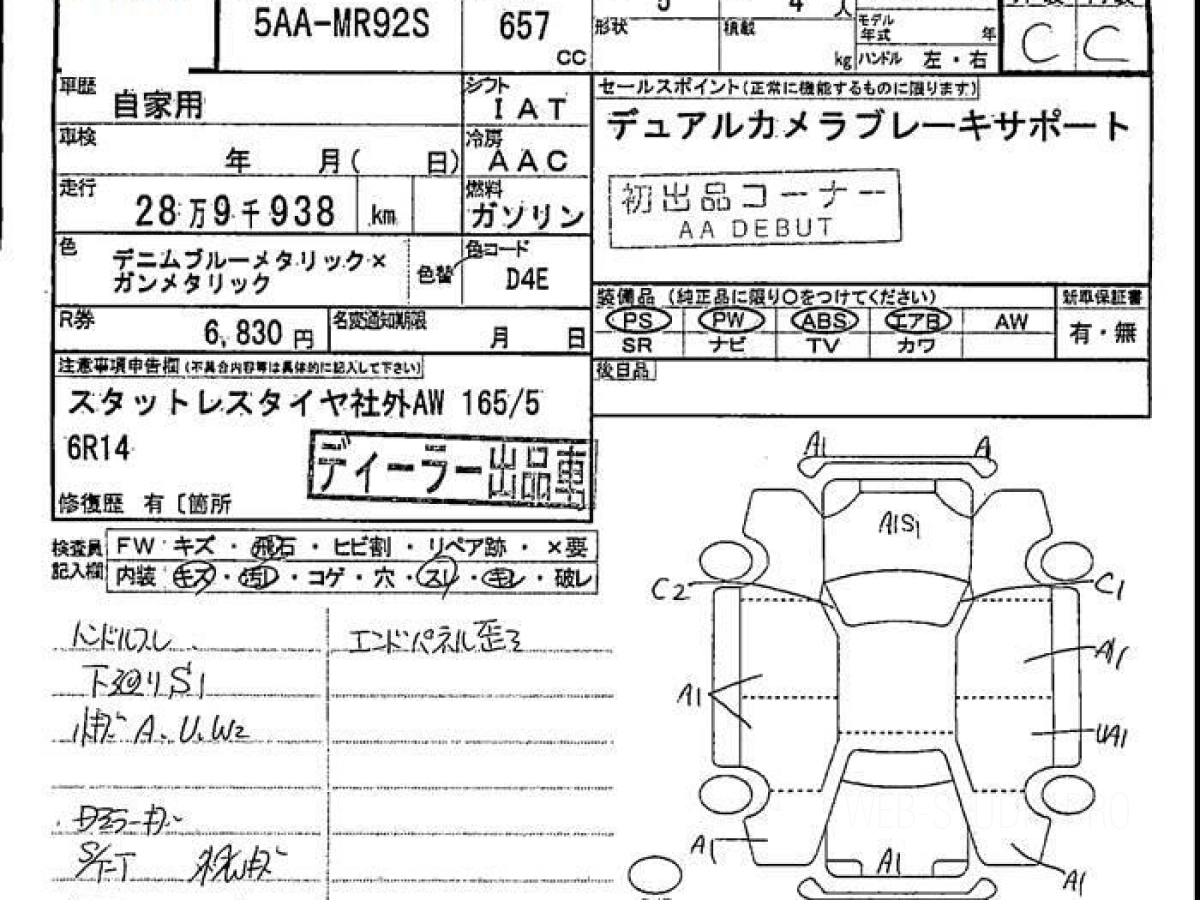 5AA-MR92S
657
CC
5
4
人
形状
積載
kg
モデル
年式
年
ハンドル 左・右
C C
車歴
自家用
シフト
IAT
車検
年 月( 日)
冷房
AAC
走行
28万9千938 km
燃料
ガソリン
色
デニムブルーメタリック×
ガンメタリック
色替
色コード
D4E
R券
6,830 円
名変通知期限
月 日
セールスポイント(正常に機能するものに限ります)
デュアルカメラブレーキサポート
初出品コーナー
AA DEBUT
装備品 (純正品に限り○をつけてください)
新車保証書
PS PW ABS エアB AW
SR ナビ TV カワ
有・無
後日品
注意事項申告欄(不具合内容等は具体的に記入して下さい)
スタットレスタイヤ社外AW 165/5
6R14
ディーラー出品車
修復歴 有〔箇所
検査員
記入欄
FW キズ・飛石・ヒビ割・リペア跡・×要
内装 キズ・汚レ・コゲ・穴・スレ・キレ・破レ
ハンドルスレ
エンドパネル歪ミ
下廻りS1
A、U、W2
A1 A
A1S1
C2 C1
A1
A1
UA1
A1
A1
A1